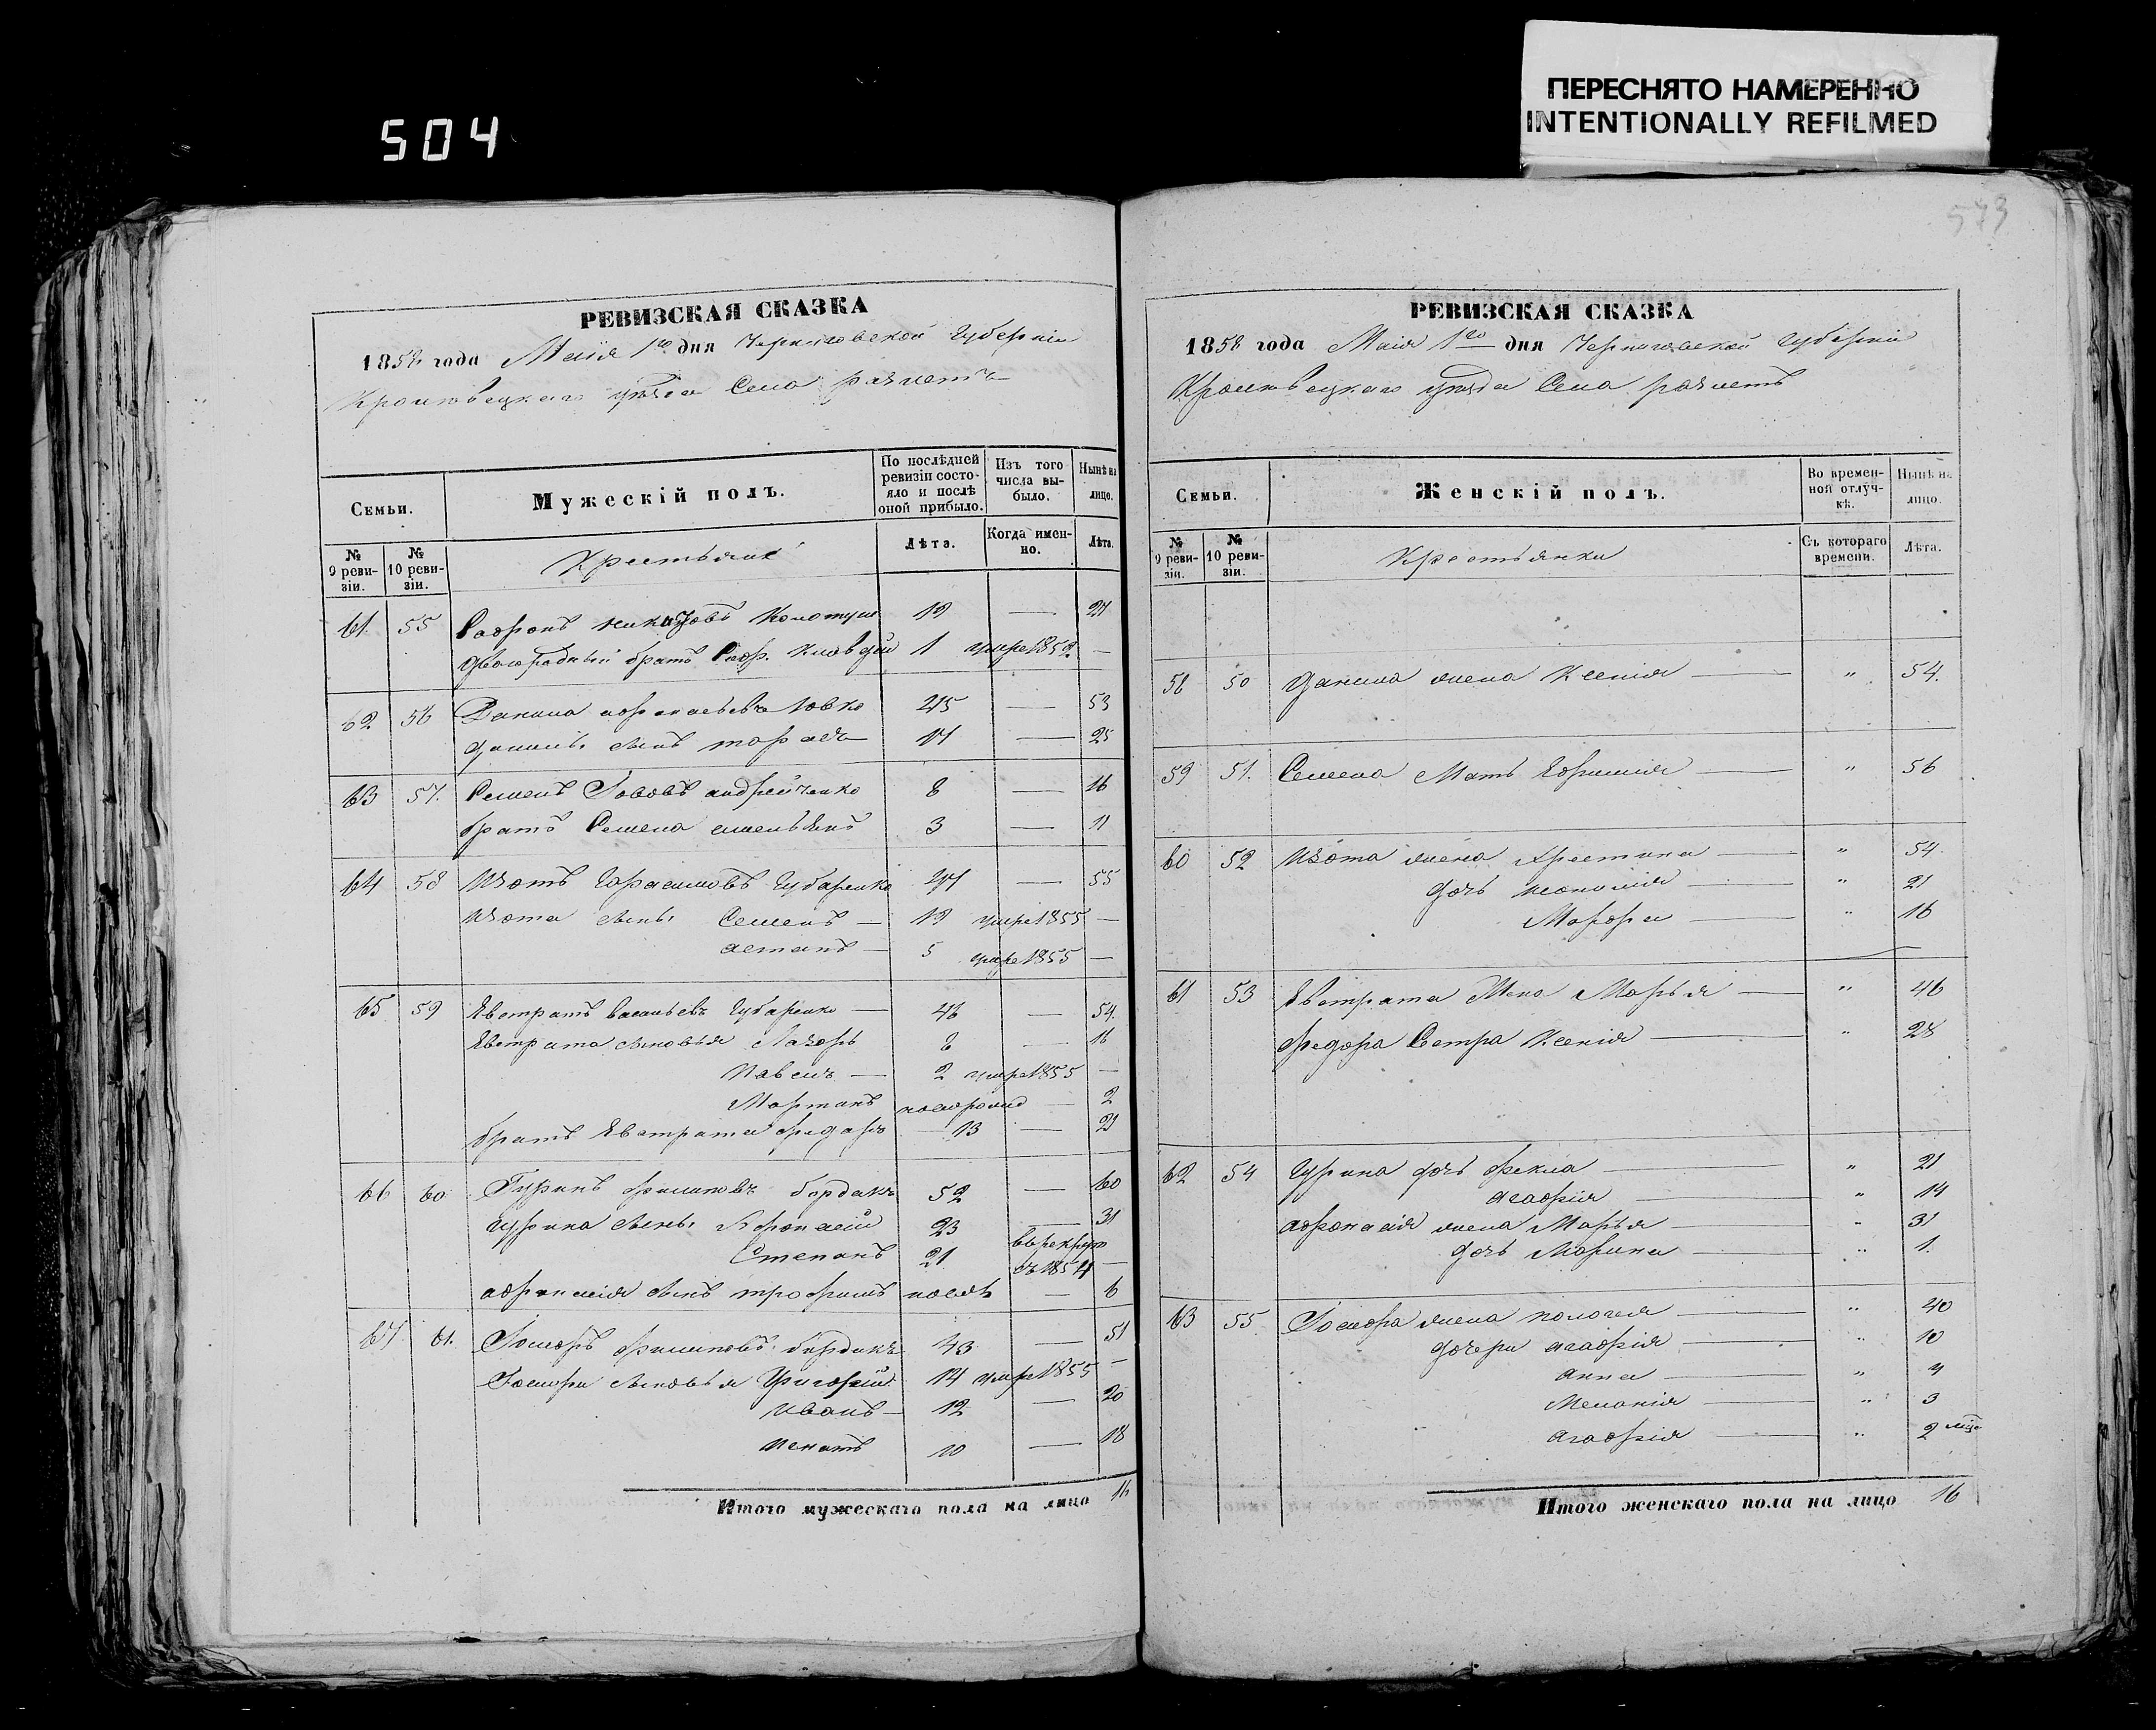 504
ПЕРЕСНЯТО НАМЕРЕННО
INTENTIONALLY REFILMED
573
РЕВИЗСКАЯ СКАЗКА
1858 года Маія 1го дня Черниговской Губерніи
Кролевецкаго уѣзда Села
Семьи.
Мужескій полъ.
По послѣдней ревизіи состояло и послѣ оной прибыло.
Изъ того числа выбыло.
Нынѣ на лицо.
№ 9 ревизіи.
№ 10 ревизіи.
Крестьяне
Лѣта.
Когда именно.
Лѣта.
61 55 Софронъ 19 — 27
двоюродный братъ Софр. 1 умре 1852 —
62 56 Данила Афанасьевъ Говко 45 — 53
Данилы сынъ Тарасъ 17 — 25
63 57. Семенъ Андрейченко 8 — 16
братъ Семена 3 — 11
64 58 Изотъ Герасимовъ Губаренко 47 — 55
Изота сыны Семенъ — 19 умре 1855 —
— 5 умре 1855 —
65 59 Евстратъ Васильевъ Губаренко — 46 — 54
Евстрата сыновья Лазарь 8 — 16
Павелъ — 2 умре 1855 —
Мартинъ — 2
братъ Евстрата Федоръ 13 — 21
66 60 Гуринъ Филиповъ Бурдакъ 52 — 60
Гурина сыны Афанасій 23 — 31
Степанъ 21 въ рекруты съ 1854 —
Афанасія сынъ Трофимъ послѣ — 6
67 61. Филиповъ Бурдакъ 43 — 51
сыновья Григорій 14 умре 1855 —
Иванъ — 12 — 20
Игнатъ 10 — 18
Итого мужескаго пола на лицо 16
РЕВИЗСКАЯ СКАЗКА
1858 года Маія 1го дня Черниговской Губерніи
Кролевецкаго уѣзда Села
Семьи.
Женскій полъ.
Во временной отлучкѣ.
Нынѣ на лицо.
№ 9 ревизіи.
№ 10 ревизіи.
Крестьянки
Съ котораго времени.
Лѣта.
50 Данила жена Ксенія — " 54.
59 51. Семена Мать Евфимія — " 56
60 52 Изота жена Христина — " 54
дочь — " 21
Марфа — " 16
61 53 Евстрата Жена Марья — " 46
Федора Сестра Ксенія — " 28
62 54 Гурина дочь Фекла — " 21
Агафія — " 14
Афанасія жена Марья — " 31
дочь Марина — " 1.
63 55 жена Пелагея — " 40
дочери Агафія — " 10
Анна — " 7
Меланія — " 3
Агафія — " 2 мѣс
Итого женскаго пола на лицо 16